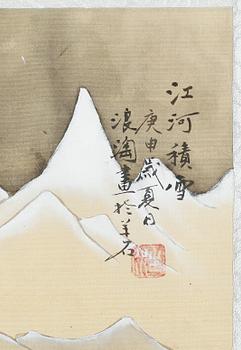 江河積雪
庚申歲夏日
浪淘畫於羊石